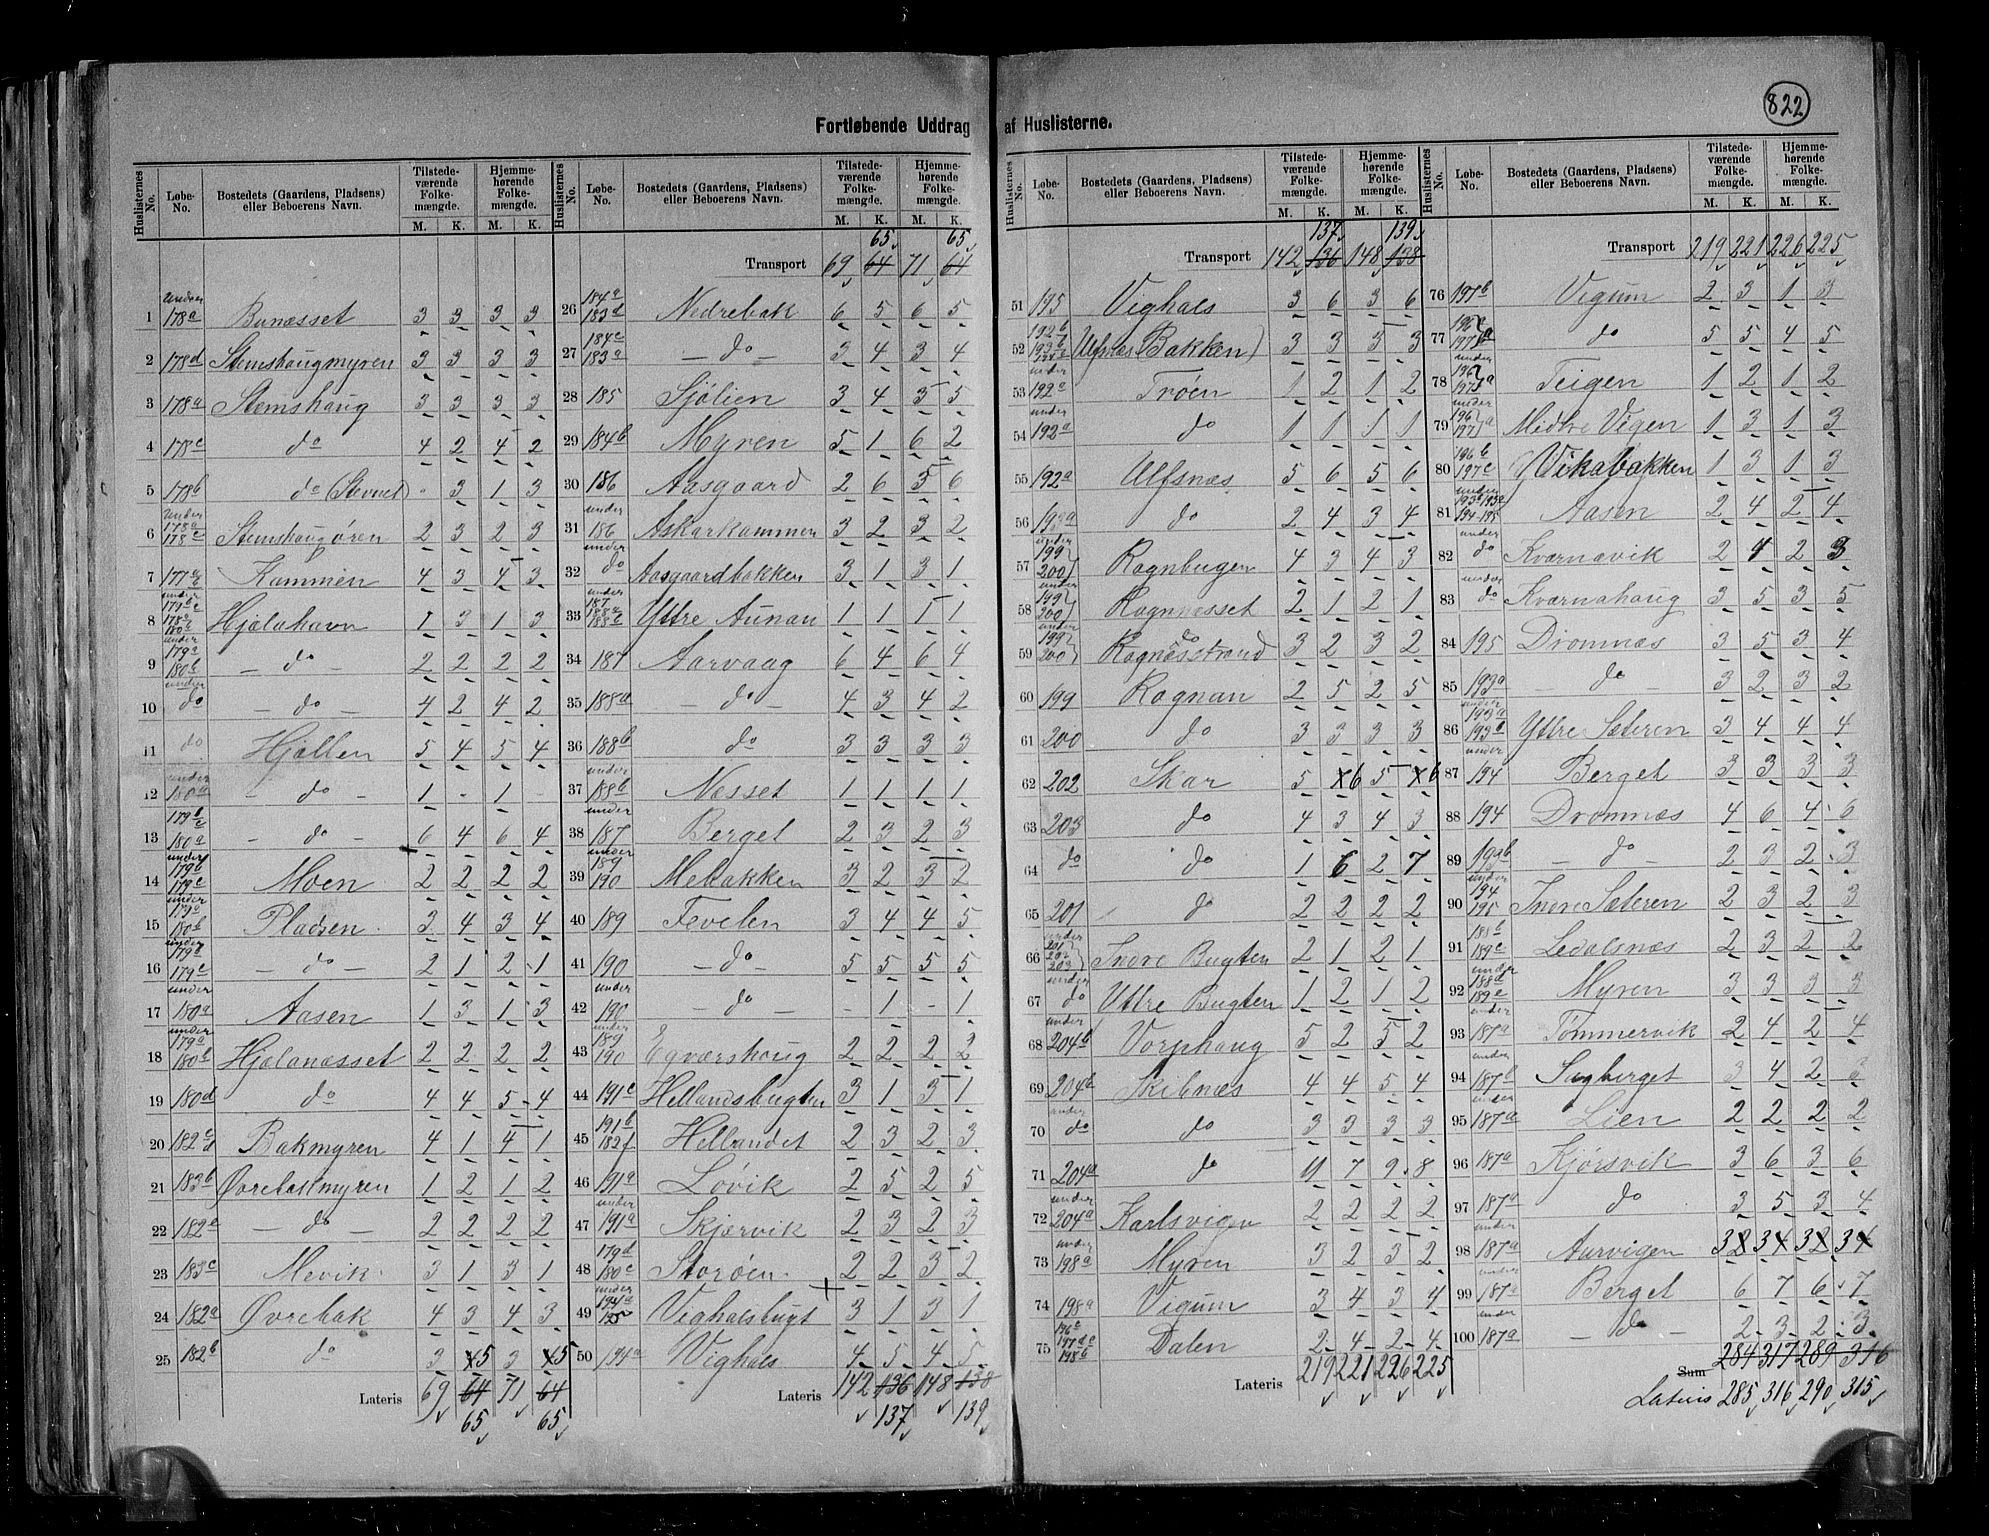 822
Fortløbende Uddrag af Huslisterne.
Huslisternes No. Løbe-No. Bostedets (Gaardens, Pladsens) eller Beboerens Navn. Tilstedeværende Folkemængde. M. K. Hjemmehørende Folkemængde. M. K.
1 under 178a Bunæsset 3 3 3 3
2 178d Stemshaugmyren 3 3 3 3
3 178a Stemshaug 3 3 3 3
4 178c do 4 2 4 2
5 178b do (Stevnet) - 3 1 3
6 under 178a 178c Stemshaugøren 2 3 2 3
7 177a Kammen 4 3 4 3
8 under 179b Hjelahavn 1 3 1 3
9 under 179a 180b - do - 2 2 2 2
10 under do - do - 4 2 4 2
11 do Hjellen 5 4 5 4
12 under 180a - do - 1 - 1 -
13 179b 180a - do - 6 4 6 4
14 under 179b 179c Moen 2 2 2 2
15 under 179a 180b Pladsen 3 4 3 4
16 under 179a 179c - do - 2 1 2 1
17 under 180a Aasen 1 3 1 3
18 under 179a 180b Hjelanæsset 2 2 2 2
19 180d do 4 4 5 4
20 182c d Bakmyren 4 1 4 1
21 183b Øvrebakmyren 1 2 1 2
22 182e - do - 2 2 2 2
23 183c Mevik 3 1 3 1
24 182a Øvrebak 4 3 4 3
25 182b do 3 5 3 5
Lateris 69 64 71 64
65 65
Huslisternes No. Løbe-No. Bostedets (Gaardens, Pladsens) eller Beboerens Navn. Tilstedeværende Folkemængde. M. K. Hjemmehørende Folkemængde. M. K.
65 65
Transport 69 64 71 64
26 184a 183d Nedrebak 6 5 6 5
27 184c 183a - do - 3 4 3 4
28 185 Sjølien 3 4 3 5
29 184b Myren 5 1 6 2
30 186 Aasgaard 2 6 5 6
31 under 186 Askarkammen 3 2 3 2
32 under do Aasgaardbakken 3 1 3 1
33 under 187 188a Yttre Aunan 1 1 1 1
34 187 Aarvaag 6 4 6 4
35 188a - do - 4 3 4 2
36 188b do 3 3 3 3
37 under 188b Nesset 1 1 1 1
38 under 187 Berget 2 3 2 3
39 under 189 190 Mebakken 3 2 3 2
40 189 Fevelen 3 4 4 5
41 190 - do - 5 5 5 5
42 under 190 - do - - 1 - 1
43 under 189 190 Egværshaug 2 2 2 2
44 191c Hellandsbugten 3 1 3 1
45 191b 182f Hellandet 2 3 2 3
46 191a Løvik 2 5 2 5
47 under 191a Skjærvik 2 3 2 3
48 179d 180c Storøen 2 2 3 2
49 under Vighalsbugt 3 1 3 1
50 Vighals 4 5 4 5
Lateris 142 136 148 138
137 139
Huslisternes No. Løbe-No. Bostedets (Gaardens, Pladsens) eller Beboerens Navn. Tilstedeværende Folkemængde. M. K. Hjemmehørende Folkemængde. M. K.
137 139
Transport 142 136 148 138
51 195 Vighals 3 6 3 6
52 192b 193b Ulfsnæs (Bakken) 3 3 3 3
53 under 192a Trøen 1 2 1 2
54 under 192a do 1 1 1 1
55 192a Ulfsnæs 5 6 5 6
56 193a do 2 4 3 4
57 under 199 200 Rognbugen 4 3 4 3
58 under 199 200 Rognnæsset 2 1 2 1
59 under 199 200 do Rognæsstrand 3 2 3 2
60 199 Rognan 2 5 2 5
61 200 do 3 3 3 3
62 202 Skar 5 6 5 6
63 203 do 4 3 4 3
64 do do 1 6 2 7
65 201 do 2 2 2 2
66 under 201 202 203 Indre Bugten 2 1 2 1
67 under do Yttre Bugten 1 2 1 2
68 under 204b Vorphaug 5 2 5 2
69 204b Skibnæs 4 4 5 4
70 under do do 3 3 3 3
71 204a do 9 7 9 8
72 under 204a Karlsvigen 2 2 2 2
73 under 198a Myren 3 2 3 2
74 198a Vigum 3 4 3 4
75 196c 197dc 198b Dalen 2 4 2 4
Lateris 219 221 226 225
Huslisternes No. Løbe-No. Bostedets (Gaardens, Pladsens) eller Beboerens Navn. Tilstedeværende Folkemængde. M. K. Hjemmehørende Folkemængde. M. K.
Transport 219 221 226 225
76 197b Vigum 2 3 1 3
77 196a 197a do 5 5 4 5
78 under 196 197 a Teigen 1 2 1 2
79 under 196 197 a Midtre Vigen 1 3 1 3
80 196b 197c Vikabakken 1 3 1 3
81 under 194-195 Aasen 2 4 2 4
82 under do Kværnavik 2 4 2 3
83 under do Kværnahaug 3 5 3 5
84 195 Dromnæs 3 5 3 4
85 193a - do - 3 2 3 2
86 under 193a 193b Yttre Sæteren 3 4 4 4
87 under 194 Berget 3 3 3 3
88 194 Dromnæs 4 6 4 6
89 - do - 2 3 2 3
90 under 194 195 Indre Sæteren 2 3 2 3
91 188b 189c Ledalsnæs 2 3 2 2
92 under 188b 189c Myren 3 3 3 3
93 under 187a Tømmervik 2 4 2 4
94 under 187b Sagberget 3 4 2
95 under 187a Lien 2 2 2 2
96 187a Kjørsvik 3 6 3 6
97 187a do 3 5 3 4
98 under 187a Aurvigen 3 3 3 3
99 under 187a Berget 6 7 6 7
100 under 187a - do - 2 3 2 3
Sum 284 317 289 316
Lateris 285 316 290 315